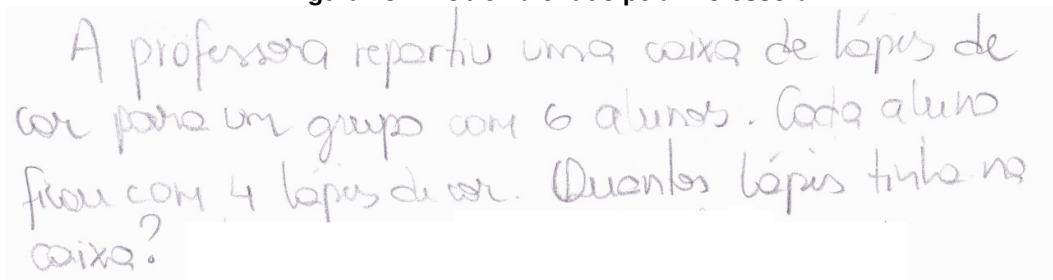 A professora repartiu uma caixa de lápis de
cor para um grupo com 6 alunos. Cada aluno
ficou com 4 lápis de cor. Quantos lápis tinha na
caixa?